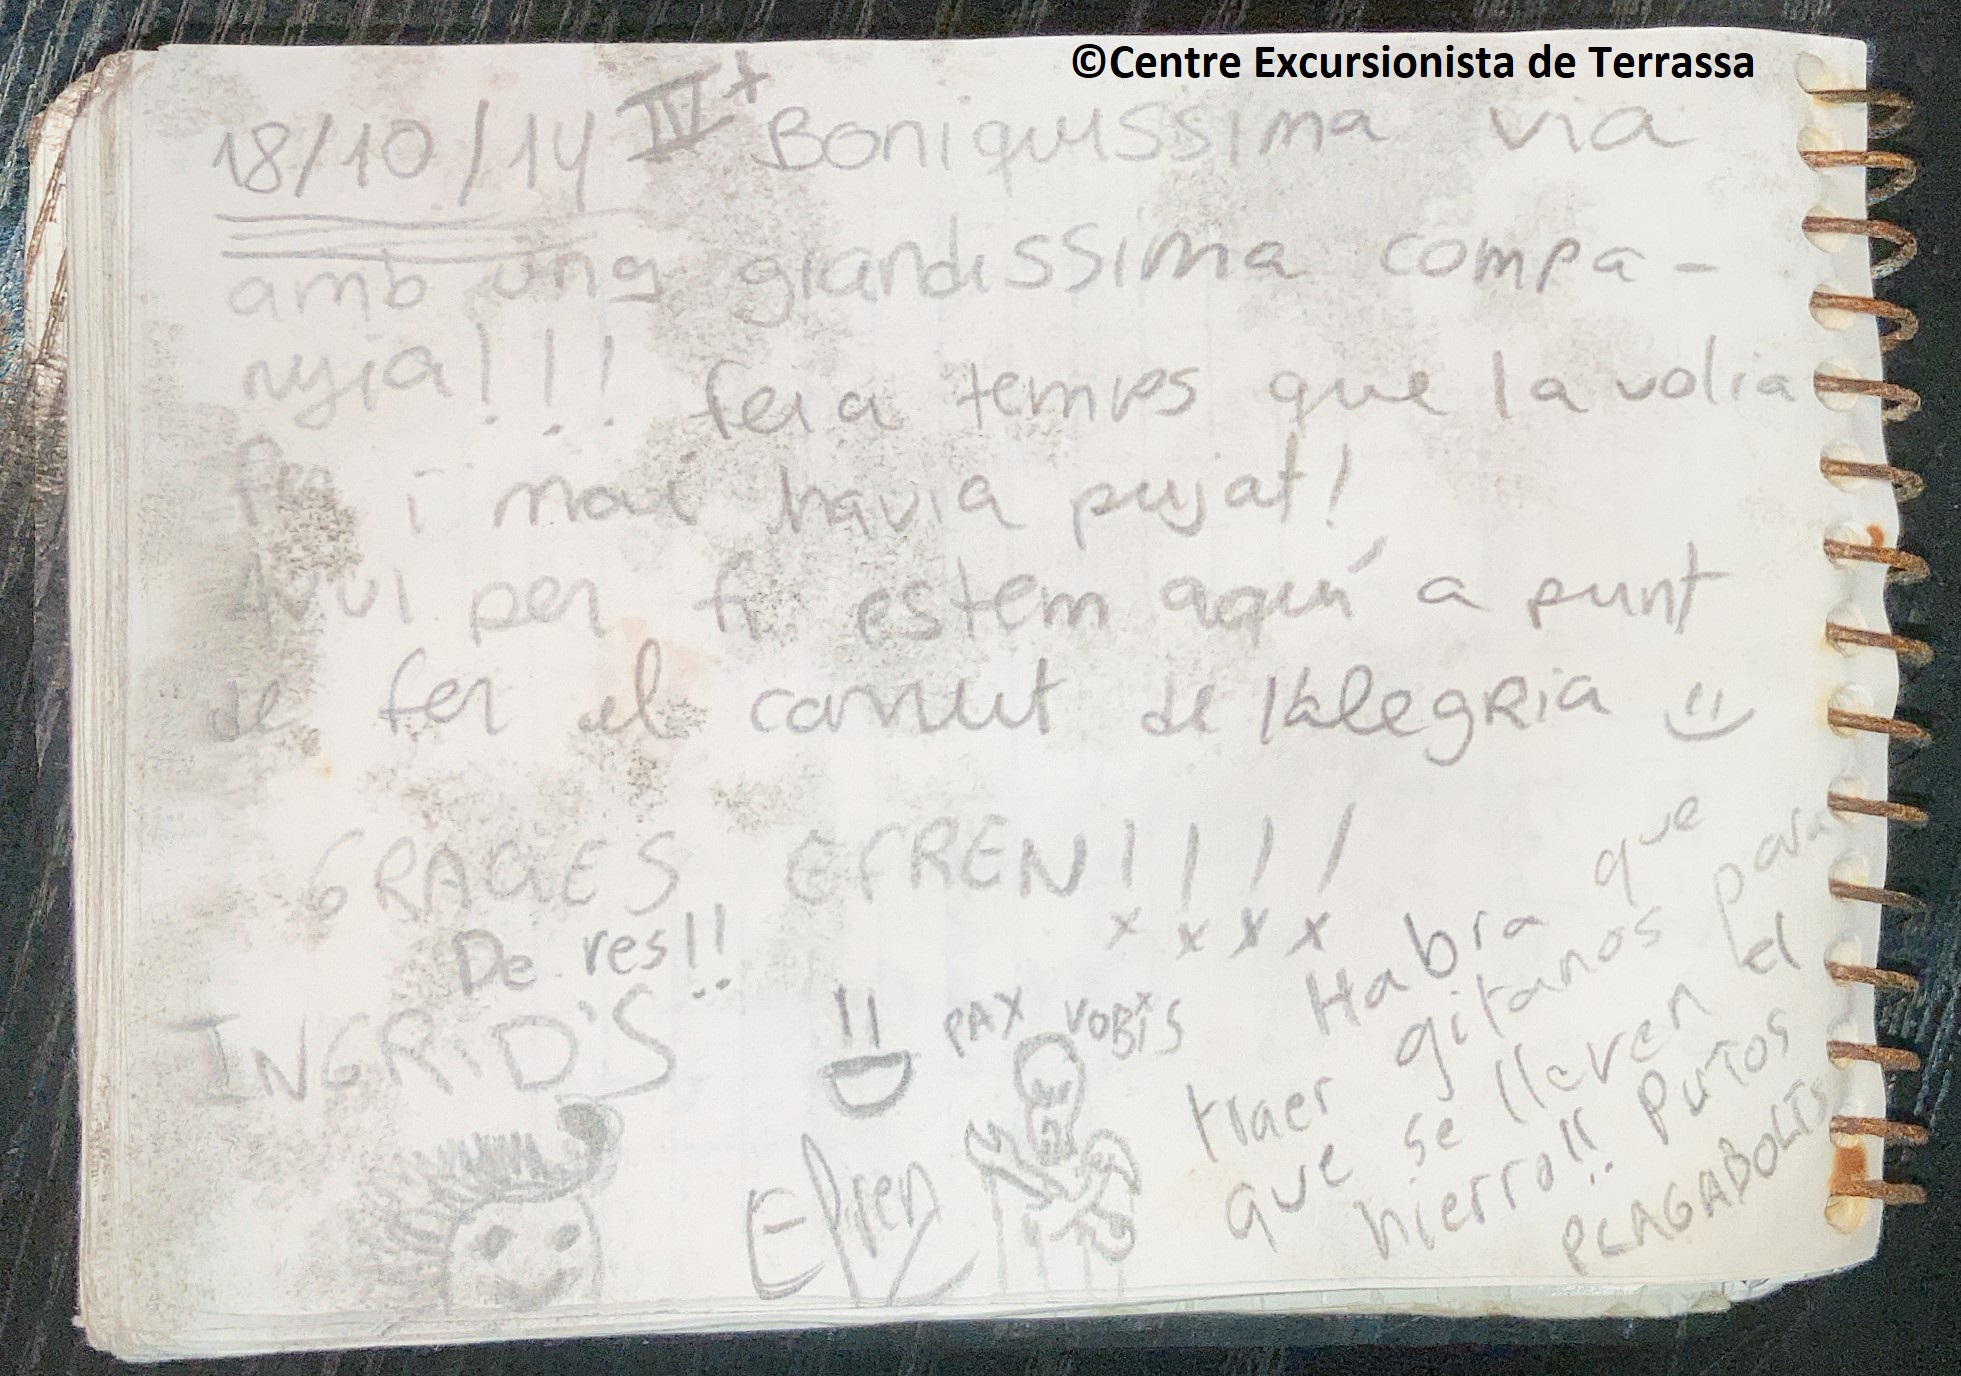 ©Centre Excursionista de Terrassa
18/10/14 IV+ Boniquissima via
amb una grandissima compa-
nyia!!! feia temps que la volia
fer i mai havia pujat!
Avui per fi estem aquí a punt
de fer el canut de l'Alegria
GRACIES EFREN!!!!
De res!!
x x x x
INGRID'S
PAX VOBIS
Efren
Habra que
traer gitanos para
que se lleven el
hierro!! PUTOS
PLAGABOLTS